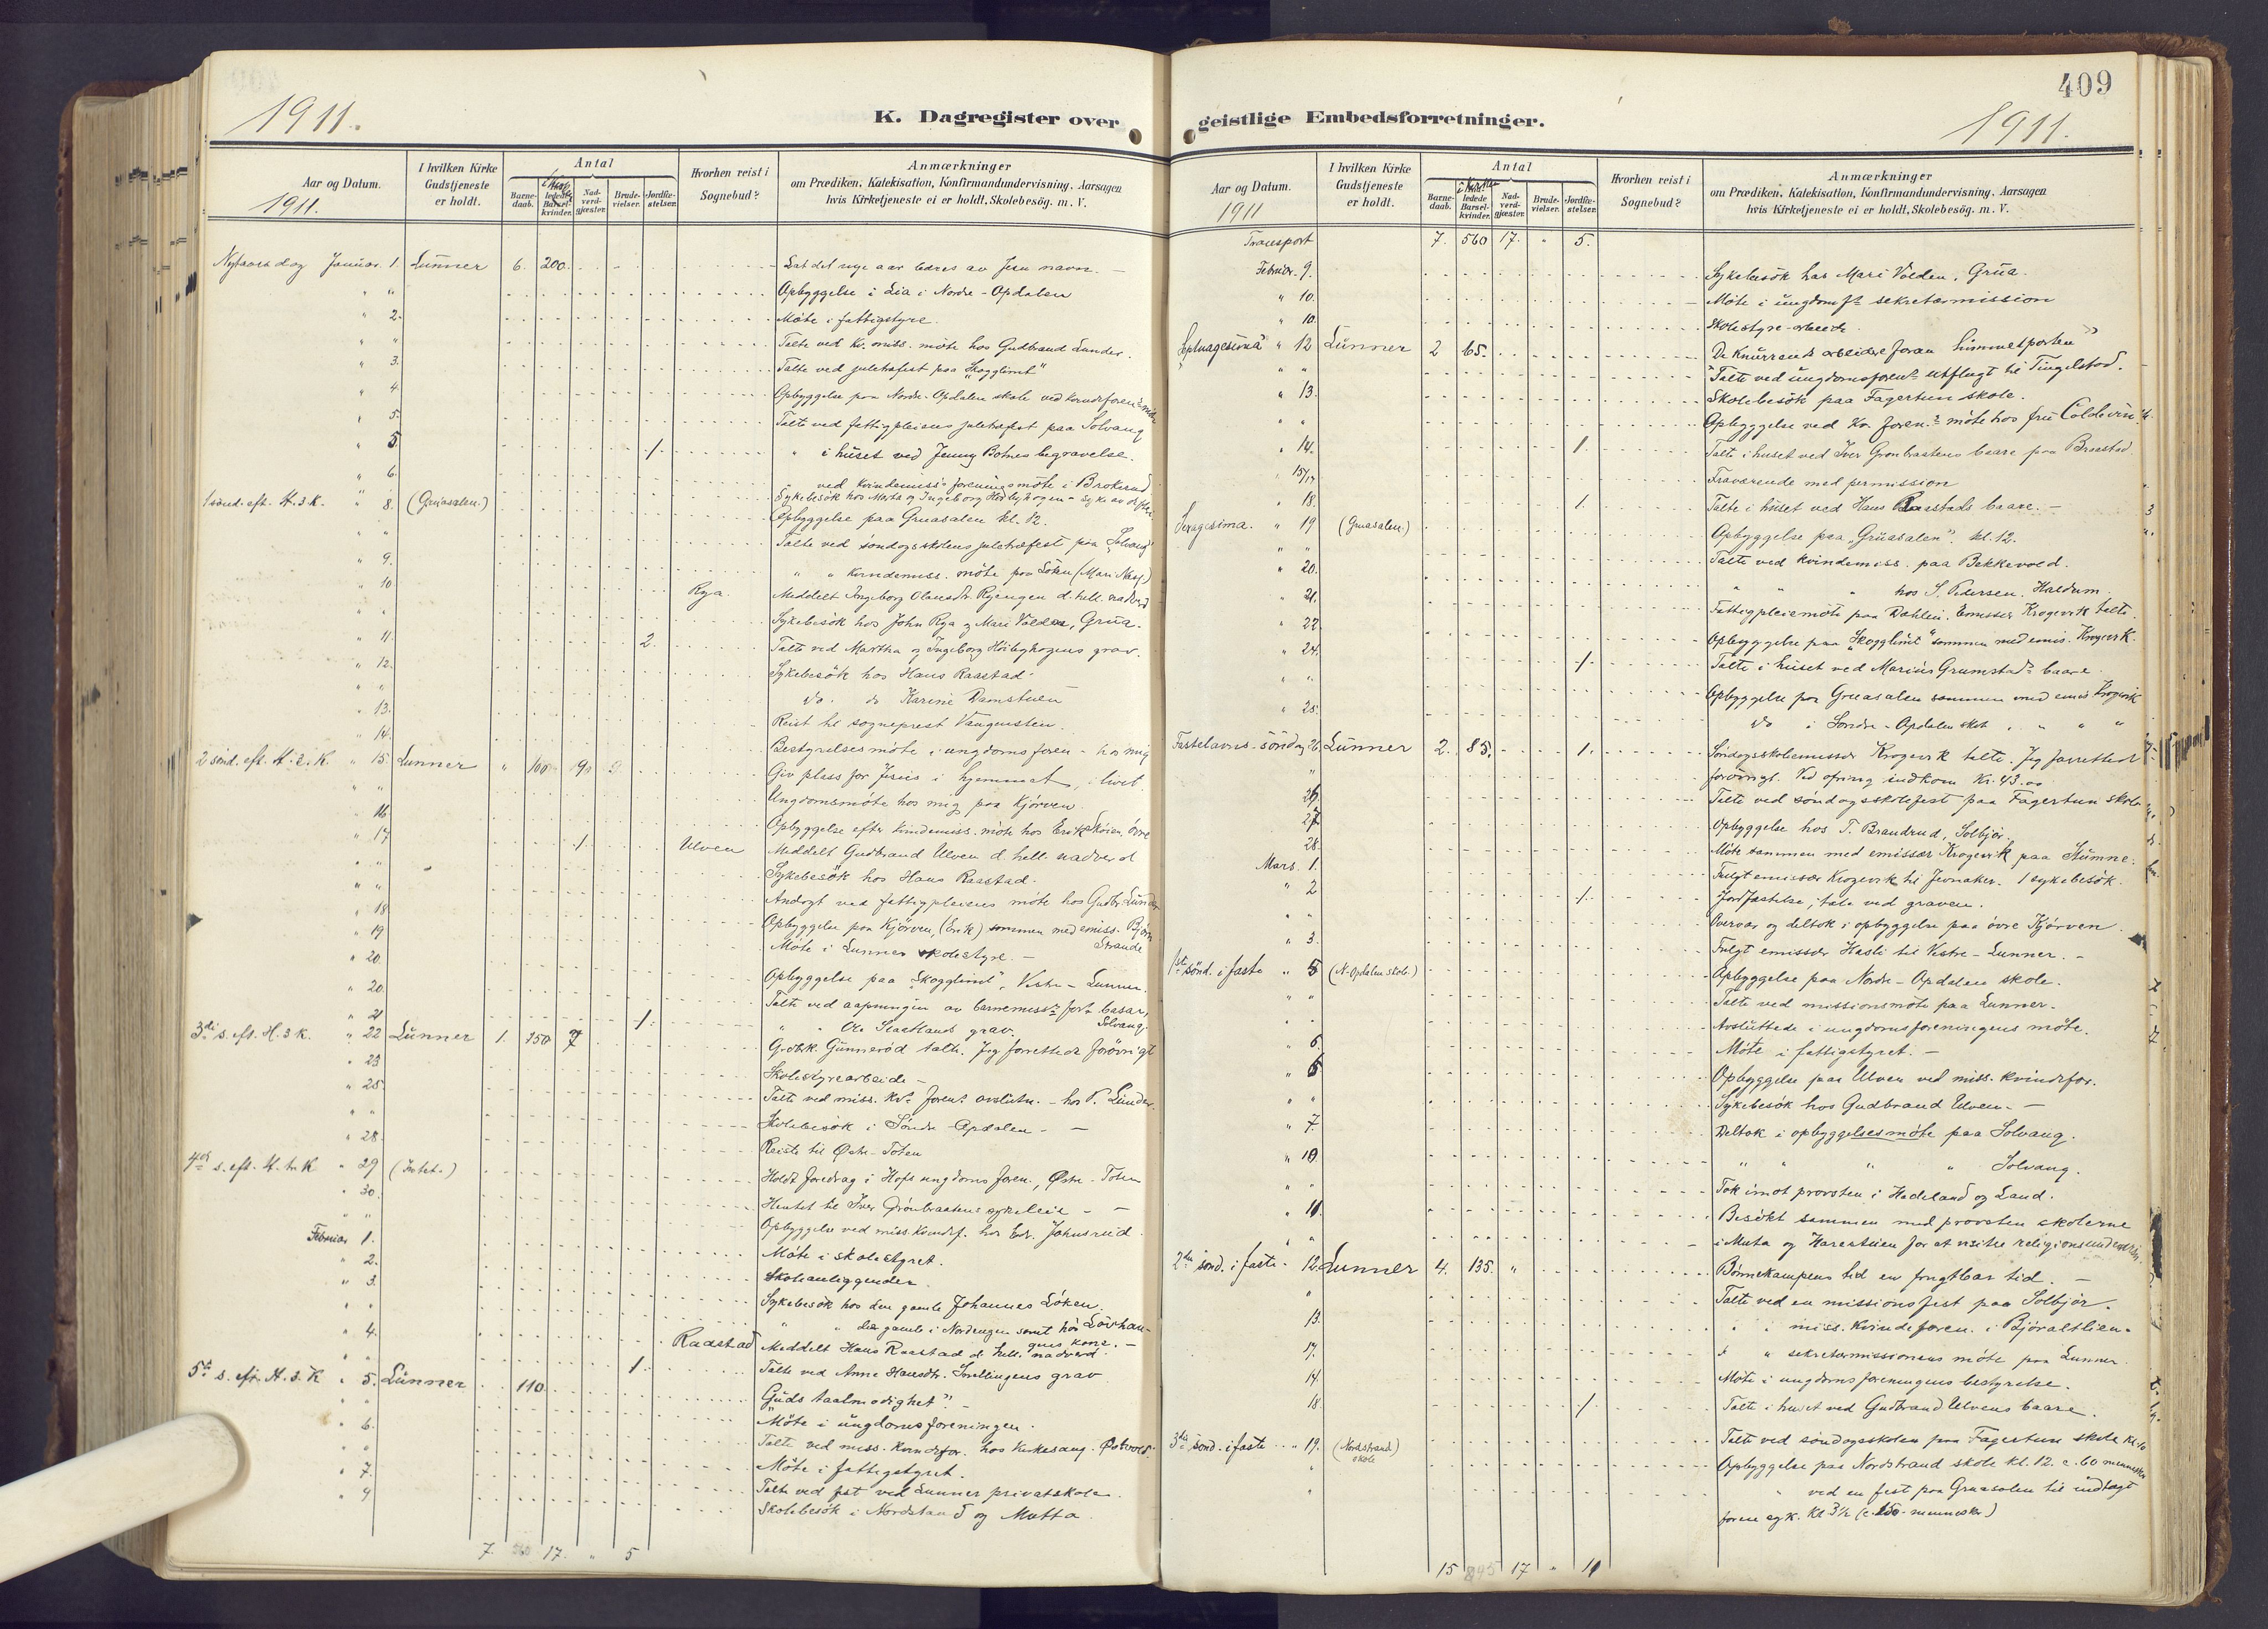 409
1911.
K. Dagregister over
Aar og Datum.
1911.
I hvilken Kirke Gudstjeneste er holdt.
Antal
Barnedaab.
Nadverdgjæster.
Brudevielser.
Jordfæstelser.
Hvorhen reist i Sognebud?
Anmærkninger
om Prædiken, Katekisation, Konfirmandundervisning, Aarsagen
hvis Kirketjeneste ei er holdt, Skolebesög. m. V.
Nytaarsdag Januar. 1. Lunner 6. 200. Lat det nye aar bæres av Jesu navn. —
" " Opbyggelse i Lia i Nordre-Opdalen
" 2. Möte i fattigstyre.
" " Talte ved kv. miss. möte hos Gudbrand Lunder.
" 3. Talte ved juletræfest paa "Skogglimt"
" 4. Opbyggelse paa Nordre-Opdalen skole ved
" 5. Talte ved fattigpleiens juletræfest paa Solvang
" 5 1. " i huset ved Jenny Botnes begravelse.
" 6. " ved kvindemiss. forenings möte i Brokerud
Sykebesök hos Marta og Ingeborg
1 sönd. eft. H. 3 K. " 8. (Gruasalen.) Opbyggelse paa Gruasalen kl. 12.
" " Talte ved söndagsskolens juletræfest paa "Solvang"
" 9. " " Kvindemiss. möte paa Löken (Mari
" 10 Rya. Meddelt Ingeborg Olausdtr. Ryengen d. hell. nadverd
" " Sykebesök hos John Rya og Mari Volden, Grua.
" 11. 2. Talte ved Martha og Ingeborg Höibyhagens grav.
" 12. Sykebesök hos Hans Raastad
" " do. do Karine Damstuen
" 13. Reist til sogneprest Vaugensten.
" 14. Bestyrelsesmöte i ungdomsforen - hos mig
2 sönd. eft. H. 3. K. " 15. Lunner " 100 Giv plass for Jesus i hjemmet, i livet.
" " Ungdomsmöte hos mig paa Kjörven.
" 16 Opbyggelse efter kvindemiss. möte hos Erik Sköien, övre
" 17 1. Ulven Meddelt Gudbrand Ulven d. hell. nadverd
" " Sykebesök hos Hans Raastad.
" " Andagt ved fattigpleiens möte hos Gudbr. Lunder
" 18. Opbyggelse paa Kjörven, (Erik) sammen med emiss. Björn Strande
" 19 Möte i Lunner skolestyre. —
" 20.
" 20. Opbyggelse paa "Skogglimt", Vestre-Lunner.
" 21 Talte ved aapningen av barnemiss. basar, Solvang.
1. " " grav.
3di s. eft. H. 3 K. " 22 Lunner 1. 150 7 Gunneröd talte. Jeg forrettede forövrigt
" 23 Skolestyrearbeide —
" 25 Talte ved miss. kv. foren. avslutn. - hos P. Lunder.
" " Skolebesök i Söndre-Opdalen - —
" 28. Reiste til Östre-Toten
4de s. eft. H. tr. K " 29 (Intet.) Holdt foredrag i Hofs ungdomsforen., Østre-Toten
" 30. Hentet til Iver Grönbraatens sykeleie - —
" " Opbyggelse ved miss. kvindef. hos Edv. Johnsrud
Februar 1. Möte i skolestyret.
" 2. Skoleanliggender.
" 3. Sykebesök hos den gamle Johannes Löken.
" " " " gamle i Nordengen samt hos
" 4. Raastad Meddelt Hans Raastad d. hell. nadverd.
" " 1. Talte ved Anne Hansdtr. Snellingens grav
5te s. eft. H. 3. K " 5. Lunner 110. "Guds taalmodighet". —
" " Möte i ungdomsforeningen.
" 6. Talte ved miss. kvindefor. hos kirkesang. Østvold.
" " Möte i fattigstyret.
" 7. Talte ved fest ved Lunner privatskole.
" 9 Skolebesök i Nordstrand og Mutta.
7. 17. " 5
geistlige Embedsforretninger.
1911.
Aar og Datum.
1911
I hvilken Kirke Gudstjeneste er holdt.
Antal
Barnedaab.
Nadverdgjæster.
Brudevielser.
Jordfæstelser.
Hvorhen reist i Sognebud?
Anmærkninger
om Prædiken, Katekisation, Konfirmandundervisning, Aarsagen
hvis Kirketjeneste ei er holdt, Skolebesög. m. V.
Transport 7. 560 17. " 5.
Februar. 9. Sykebesök hos Mari Volden, Grua.
" 10. Möte i ungdomsf. sekretærmission
" 10. Skolestyre-arbeide.
Septuagesima " 12 Lunner 2 65. De knurrende arbeidere foran himmelporten"
" " Talte ved ungdomsforen. utflugt til Tingelstad.
" 13. Skolebesök paa Fagertun skole.
" " Opbyggelse ved Kv. foren. möte hos fru Coldevin.
" 14. 1. Talt i huset ved Iver Grönbraatens baare paa Braastad.
" 15/17 Fraværende med permission
" 18. 1. Talte i huset ved Hans Raastads baare. —
Sexagesima. " 19 (Gruasalen.) Opbyggelse paa "Gruasalen". kl. 12.
" " Talte ved kvindemiss. paa Bekkevold.
" 20. " " hos S. Pedersen, Haldum
" 21. Fattigpleiemöte paa Dahlen. Emissær Krogevik talte.
" 22 Opbyggelse paa "Skogglimt" sammen med emis. Krogevik.
" 24. 1. Talte i huset ved Marius Grumstads baare
" " Opbyggelse paa Gruasalen sammen med emis. Krogevik
" 25. do i Söndre-Opdalen skole " " "
Fastelavns-söndag 26. Lunner 2. 85. 1. Söndagsskoleemissær Krogevik talte. Jeg forrettet
" forövrigt. Ved ofring indkom Kr. 43.00
26. Talte ved söndagsskolefest paa Fagertun skole
27 Opbyggelse hos T. Brandrud, Solbjör.
28. Möte sammen med emissær Krogevik paa Stumne.
Mars. 1. Fulgt emissær Krogevik til Jevnaker. 1 sykebesök.
" 2 1. Jordfæstelse; tale ved graven.
" " Overvar og deltok i opbyggelse paa övre Kjörven.
" 3. Fulgt emissær Hasli til Vestre-Lunner. -
1ste sönd. i faste " 5 (N-Opdalen skole.) Opbyggelse paa Nordre-Opdalen skole.
" " Talte ved missionsmöte paa Lunner.
" " Avsluttede i ungdomsforeningens möte.
" 6. Möte i fattigstyret. —
" 6 Opbyggelse paa Ulven ved miss. kvindefor.
" " Sykebesök hos Gudbrand Ulven. —
" 7. Deltok i opbyggelsesmöte paa Solvang.
" 10. " " " " Solvang.
" " Tok imot provsten i Hadeland og Land.
" 11. Besökt sammen med provsten skolerne
" " i Muta og Harestuen for at visitere religionsundervisn.
2den sönd. i faste. 12. Lunner 4. 135. " Bönnekampens tid en frugtbar tid. —
" Talte ved en missionsfest paa Solbjör.
13. " " miss. kvindeforen. i Björaltlien.
17. " " sekretærmissionens möte paa Lunner
14. Möte i ungdomsforeningens bestyrelse.
18. 1 Talte i huset ved Gudbrand Ulvens baare.
3die sönd. i faste " 19. (Nordstrand skole) Talte ved söndagsskolen paa Fagertun skole kl. 10
" Opbyggelse paa Nordstrand skole kl. 12. c. 60 mennesker
" " ved en fest paa Gruasalen til indtægt
for en syk. Kl 3½ (c. 150 mennesker)
15 845 17 " 11